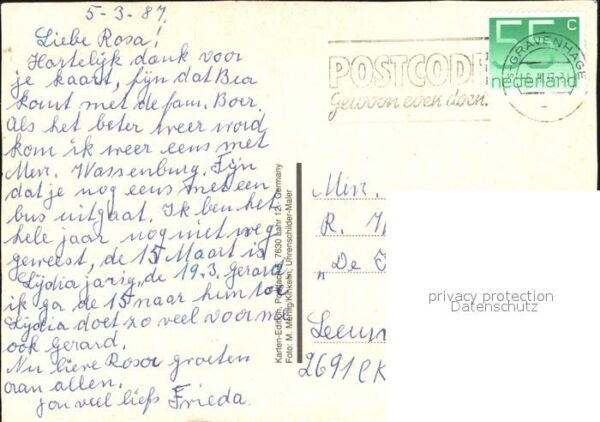 5-3-87.
Liebe Rosa!
Hartelijk dank voor
je kaart, fijn dat Bea
komt met de fam. Boer.
Als het beter weer word
kom ik weer eens met
Mevr. Wassenburg. Fijn
dat je nog eens met een
bus uitgaat. Ik ben het
hele jaar nog niet weg
geweest, de 15 Maart is
Lydia jarig, de 19.3. Gerard
ik ga de 15 naar hun toe
Lydia doet zo veel voor me
ook Gerard.
Nu lieve Rosa groeten
aan allen.
jou veel liefs Frieda.
Karten-Edition 7630 Lahr 12, Germany
Foto: M. Mehlig/Kinkelin, Uhrenschilder-Maler
55 c
nederland
'S-GRAVENHAGE
POSTCODE
Gewoon even doen.
Mevr.
R.
"De
2691
privacy protection
Datenschutz